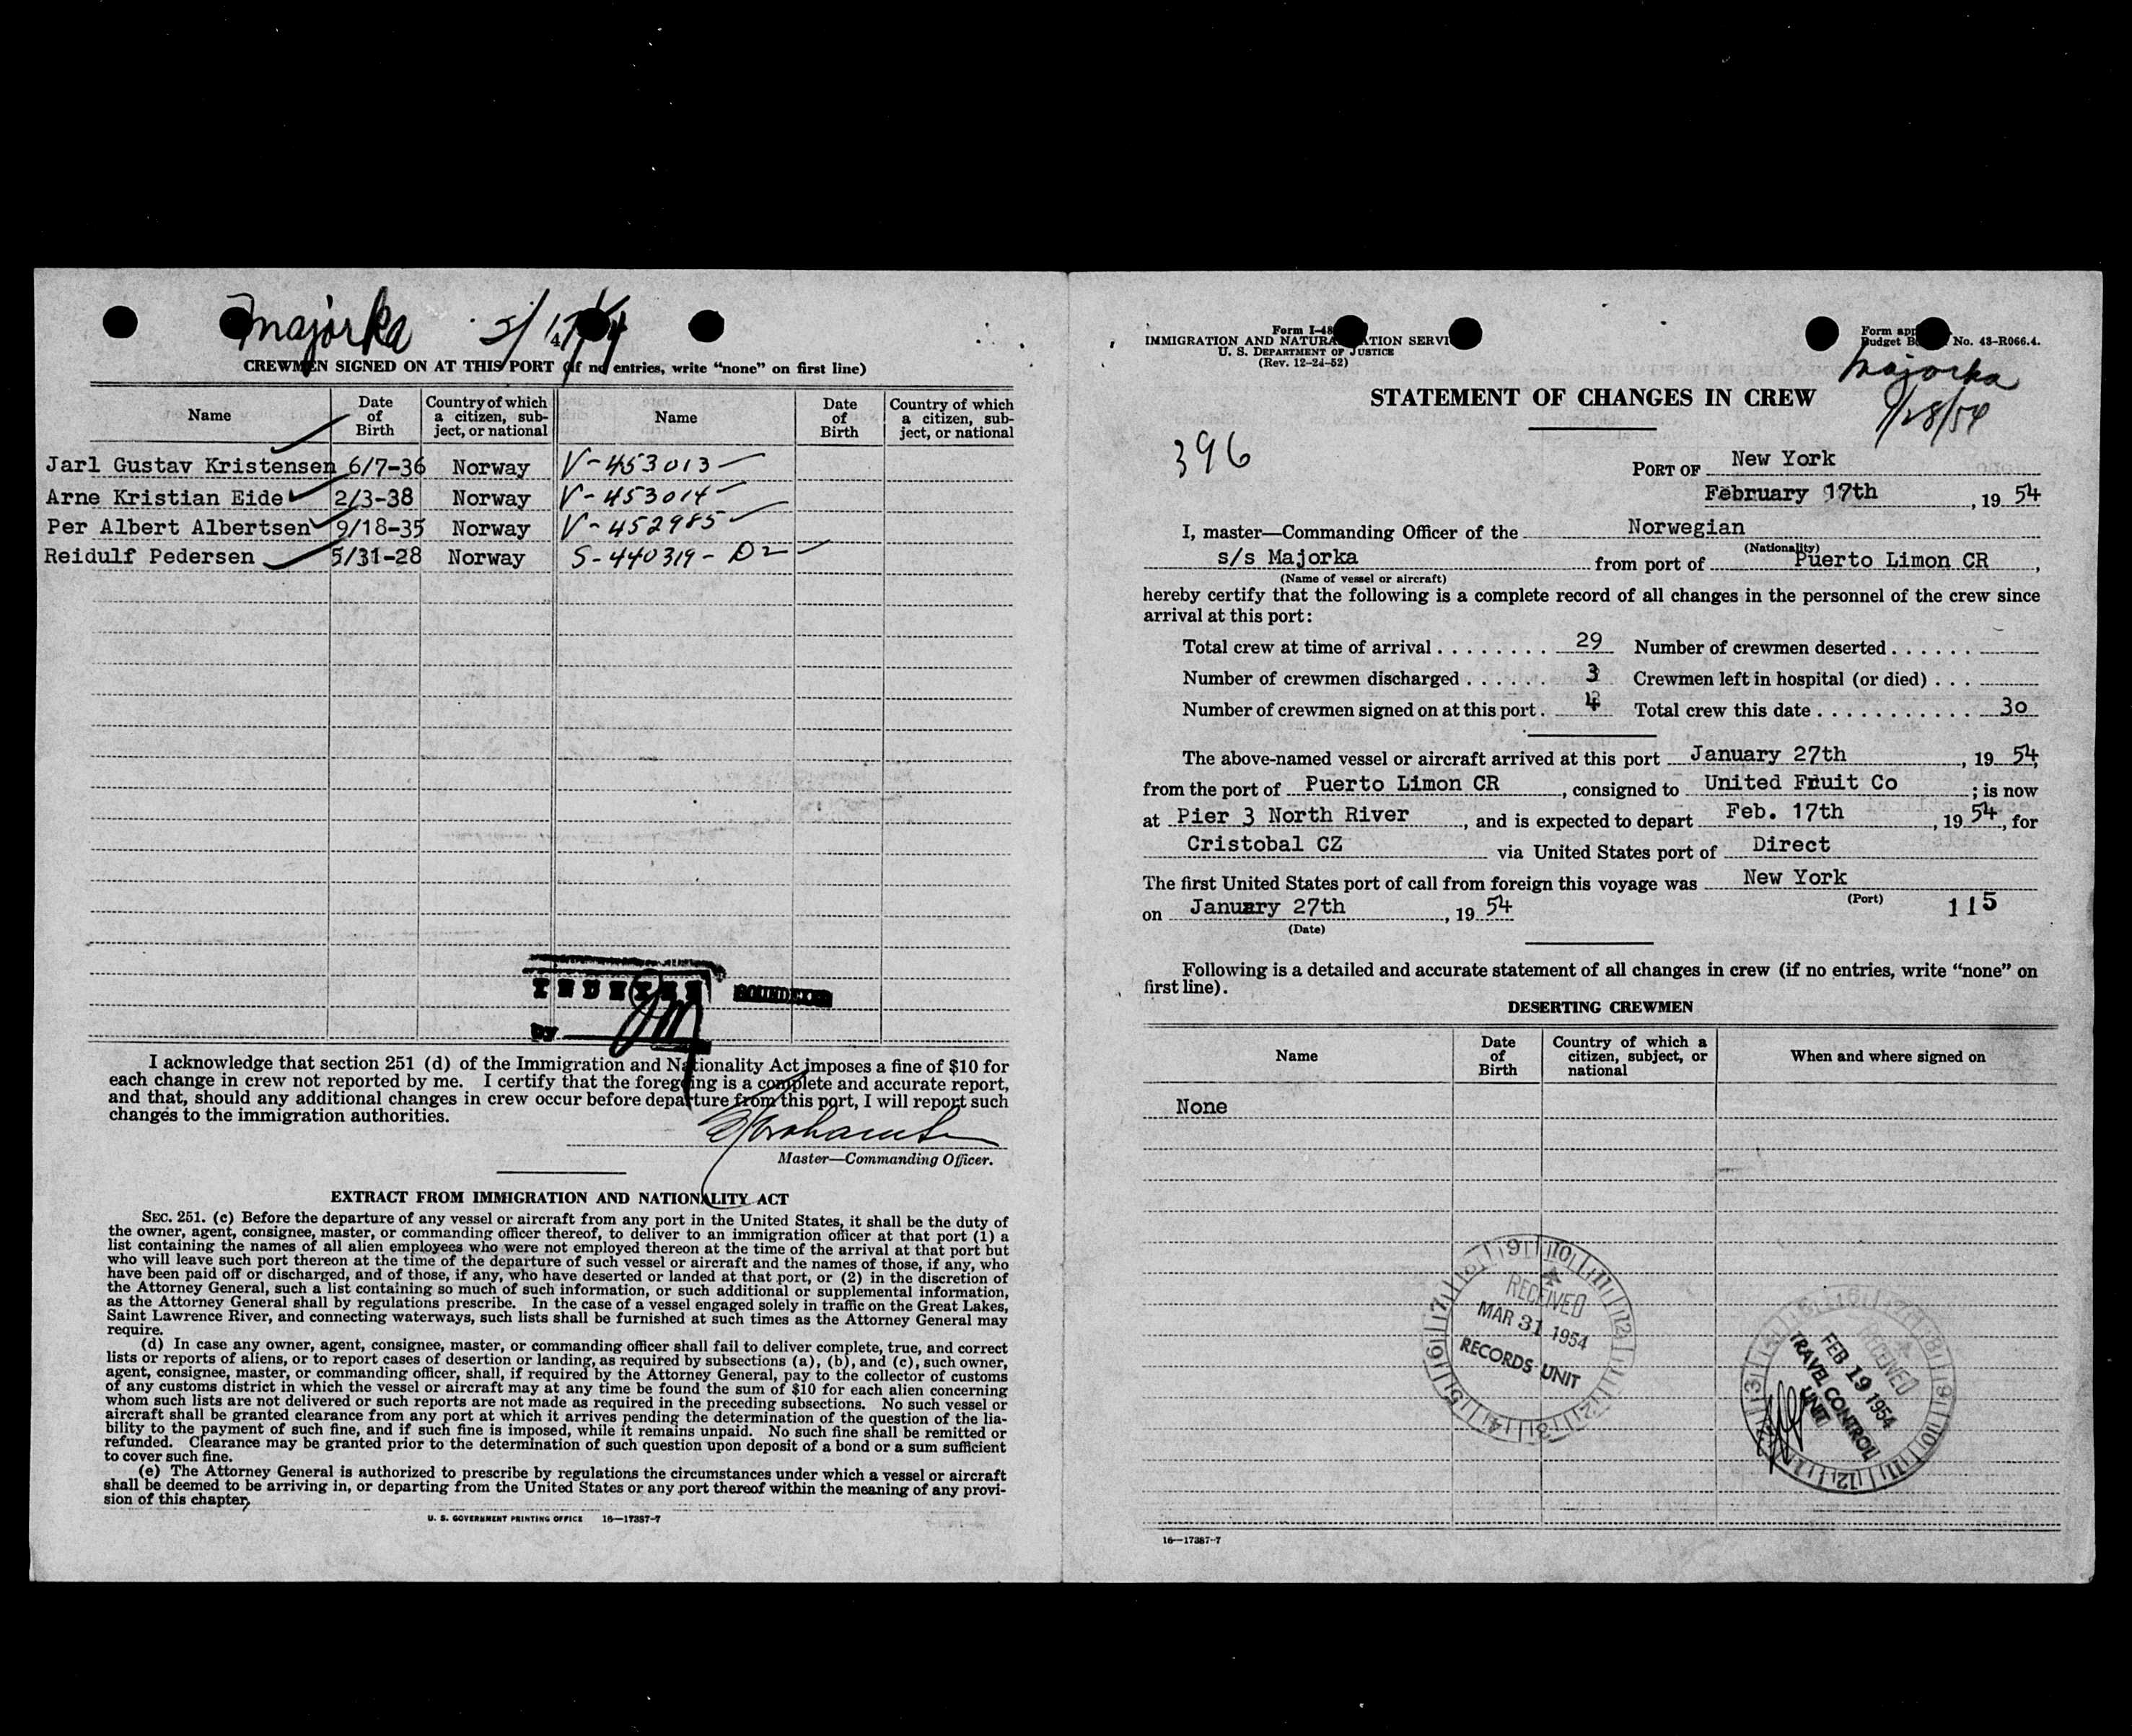 Majorka
CREWMEN SIGNED ON AT THIS PORT (if no entries, write “none” on first line)
Name Date of Birth Country of which a citizen, subject, or national Name Date of Birth Country of which a citizen, subject, or national
Jarl Gustav Kristensen 6/7-36 Norway V-453013
Arne Kristian Eide 2/3-38 Norway V-453014
Per Albert Albertsen 9/18-35 Norway V-452985
Reidulf Pedersen 5/31-28 Norway S-440319-D2
by
I acknowledge that section 251 (d) of the Immigration and Nationality Act imposes a fine of $10 for
each change in crew not reported by me. I certify that the foregoing is a complete and accurate report,
and that, should any additional changes in crew occur before departure from this port, I will report such
changes to the immigration authorities.
Master—Commanding Officer.
EXTRACT FROM IMMIGRATION AND NATIONALITY ACT
SEC. 251. (c) Before the departure of any vessel or aircraft from any port in the United States, it shall be the duty of
the owner, agent, consignee, master, or commanding officer thereof, to deliver to an immigration officer at that port (1) a
list containing the names of all alien employees who were not employed thereon at the time of the arrival at that port but
who will leave such port thereon at the time of the departure of such vessel or aircraft and the names of those, if any, who
have been paid off or discharged, and of those, if any, who have deserted or landed at that port, or (2) in the discretion of
the Attorney General, such a list containing so much of such information, or such additional or supplemental information,
as the Attorney General shall by regulations prescribe. In the case of a vessel engaged solely in traffic on the Great Lakes,
Saint Lawrence River, and connecting waterways, such lists shall be furnished at such times as the Attorney General may
require.
(d) In case any owner, agent, consignee, master, or commanding officer shall fail to deliver complete, true, and correct
lists or reports of aliens, or to report cases of desertion or landing, as required by subsections (a), (b), and (c), such owner,
agent, consignee, master, or commanding officer, shall, if required by the Attorney General, pay to the collector of customs
of any customs district in which the vessel or aircraft may at any time be found the sum of $10 for each alien concerning
whom such lists are not delivered or such reports are not made as required in the preceding subsections. No such vessel or
aircraft shall be granted clearance from any port at which it arrives pending the determination of the question of the lia-
bility to the payment of such fine, and if such fine is imposed, while it remains unpaid. No such fine shall be remitted or
refunded. Clearance may be granted prior to the determination of such question upon deposit of a bond or a sum sufficient
to cover such fine.
(e) The Attorney General is authorized to prescribe by regulations the circumstances under which a vessel or aircraft
shall be deemed to be arriving in, or departing from the United States or any port thereof within the meaning of any provi-
sion of this chapter.
U. S. GOVERNMENT PRINTING OFFICE 16—17387-7
Form I-48
IMMIGRATION AND NATURALIZATION SERVICE
U. S. DEPARTMENT OF JUSTICE
(Rev. 12-24-52)
Form app
Budget B No. 43-R066.4.
Majorka
1/28/54
STATEMENT OF CHANGES IN CREW
396
PORT OF New York
February 17th, 19 54
I, master—Commanding Officer of the Norwegian
(Nationality)
s/s Majorka from port of Puerto Limon CR,
(Name of vessel or aircraft)
hereby certify that the following is a complete record of all changes in the personnel of the crew since
arrival at this port:
Total crew at time of arrival . . . . . . . . 29 Number of crewmen deserted . . . . . .
Number of crewmen discharged . . . . . . 3 Crewmen left in hospital (or died) . . .
Number of crewmen signed on at this port . 4 Total crew this date . . . . . . . . . . . 30
The above-named vessel or aircraft arrived at this port January 27th, 19 54,
from the port of Puerto Limon CR, consigned to United Fruit Co; is now
at Pier 3 North River, and is expected to depart Feb. 17th, 19 54, for
Cristobal CZ via United States port of Direct
The first United States port of call from foreign this voyage was New York
(Port)
on January 27th, 19 54
(Date)
115
Following is a detailed and accurate statement of all changes in crew (if no entries, write “none” on
first line).
DESERTING CREWMEN
Name Date of Birth Country of which a citizen, subject, or national When and where signed on
None
RECEIVED
MAR 31 1954
RECORDS UNIT
RECEIVED
FEB 19 1954
TRAVEL CONTROL
UNIT
16—17387-7